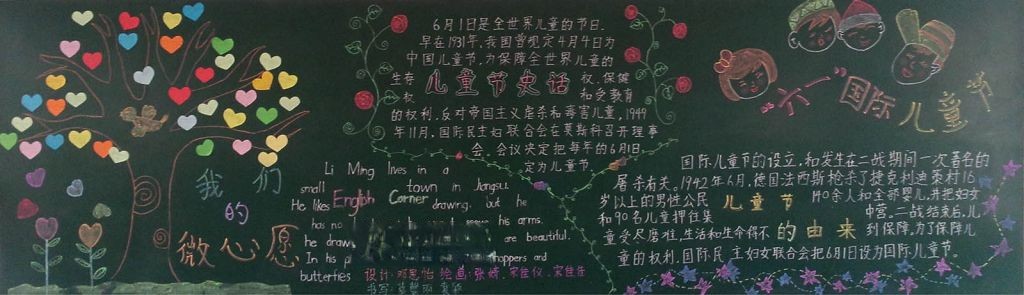 我们
的
微心愿
6月1日是全世界儿童的节日.
早在1931年,我国曾规定4月4日为
中国儿童节,为保障全世界儿童的
生存 儿童节史话 权、保健
权 和受教育
的权利,反对帝国主义虐杀和毒害儿童,1949
年11月,国际民主妇联合会在莫斯科召开理事
会,会议决定把每年的6月1日,
定为儿童节.
Li Ming lives in a
small town in Jiangsu.
English Corner
He likes drawing, but he
has no his arms.
he draws are beautiful.
In his hoppers and
butterflies
设计:邓思怡 绘画:张婷、宋佳仪、宋佳乐
书写:
"六一"国际儿童节
国际儿童节的设立,和发生在二战期间一次著名的
屠杀有关。1942年6月,德国法西斯枪杀了捷克利迪策村16
岁以上的男性公民 儿童节 140余人和全部婴儿,并把妇女
和90名儿童押往集 中营。二战结束后,儿
童受尽磨难,生活和生命得不 的由来 到保障,为了保障儿
童的权利,国际民主妇女联合会把6月1日设为国际儿童节。